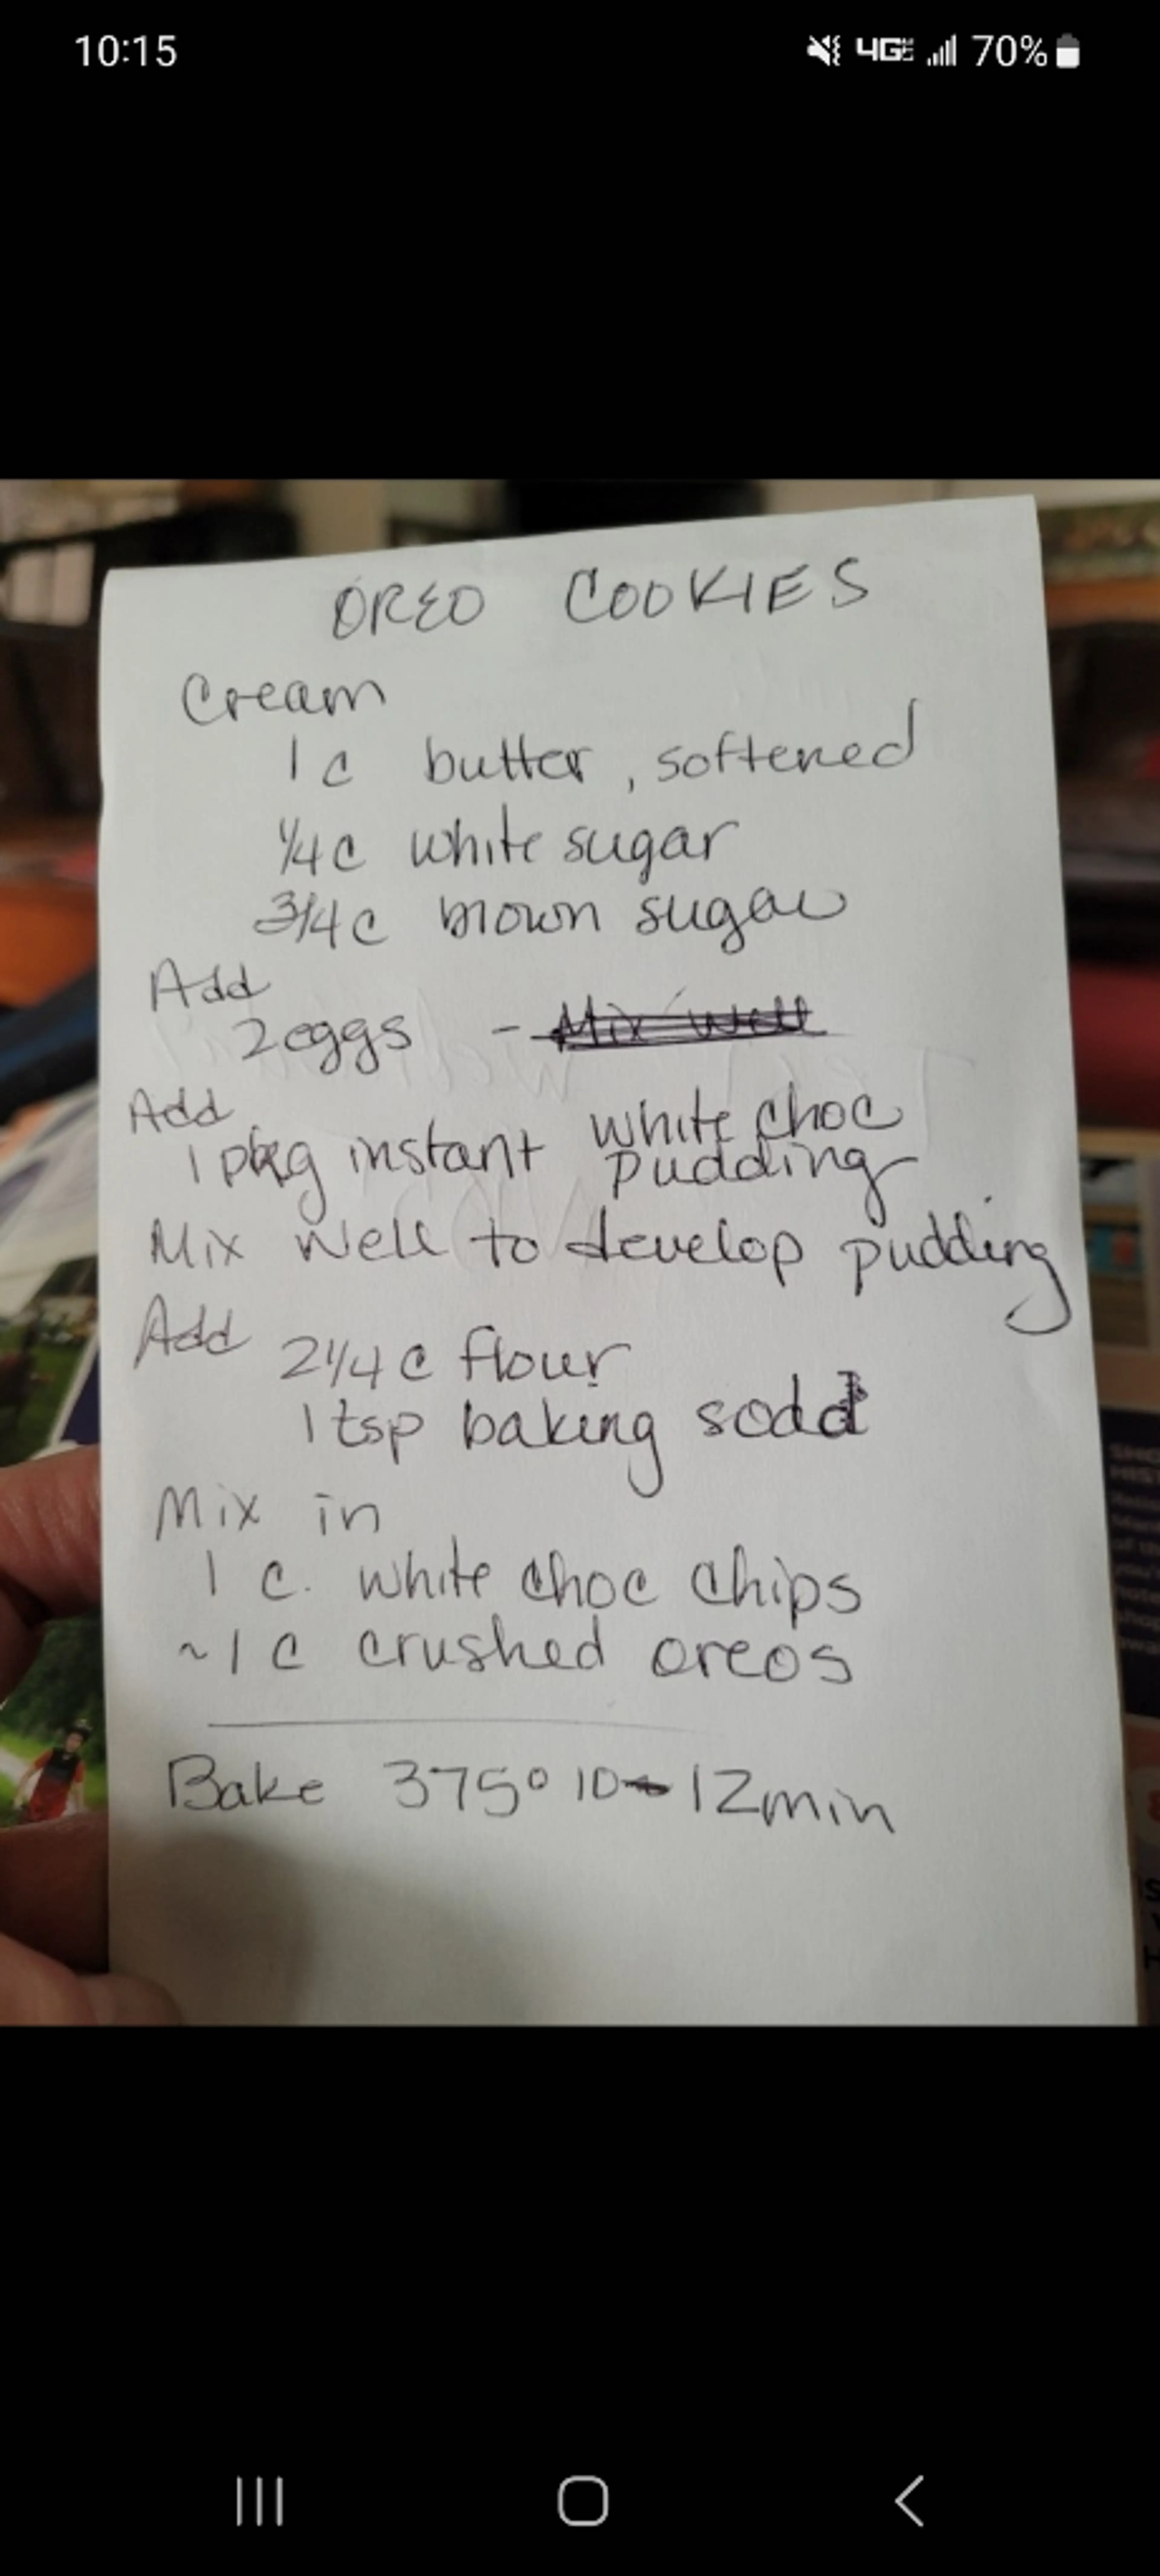 10:15 4GE 70%
OREO COOKIES
Cream
1 c butter, softened
1/4 c white sugar
3/4 c brown sugar
Add
2 eggs - Mix well
Add
1 pkg instant white choc
pudding
Mix well to develop pudding
Add 2 1/4 c flour
1 tsp baking soda
Mix in
1 c. white choc chips
~1 c crushed oreos
Bake 375° 10-12min